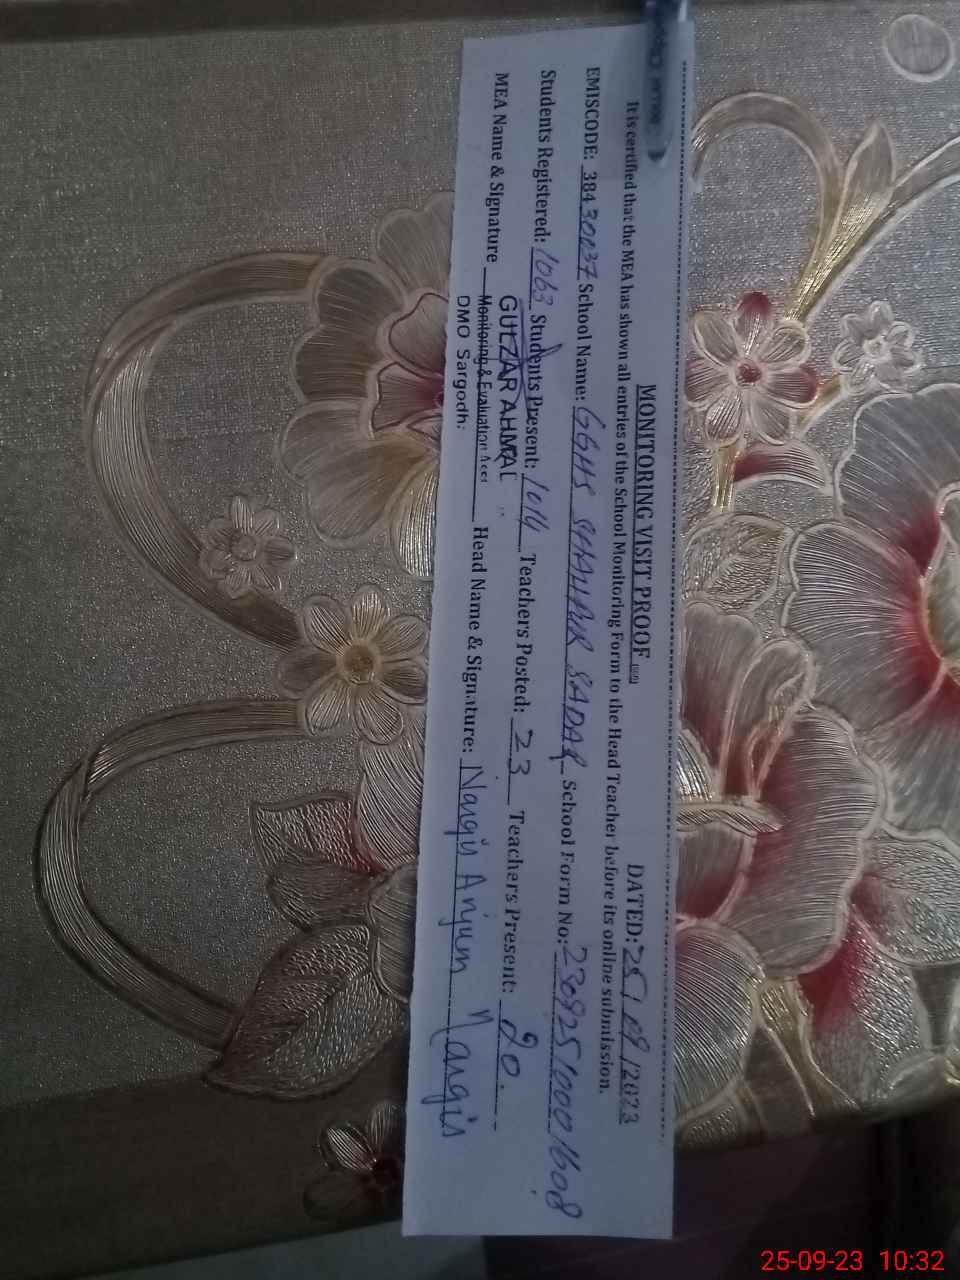 MONITORING VISIT PROOF
DATED: 25/09/2023
It is certified that the MEA has shown all entries of the School Monitoring Form to the Head Teacher before its online submission.
EMISCODE: 38430037 School Name: GGHS SHAHPUR SADAR School Form No: 23092510001608
Students Registered: 1063 Students Present: 1014 Teachers Posted: 23 Teachers Present: 20.
MEA Name & Signature Head Name & Signature: Nargis Anjum Nargis
GULZAR AHMAD
Monitoring & Evaluation
DMO Sargodh:
25-09-23 10:32